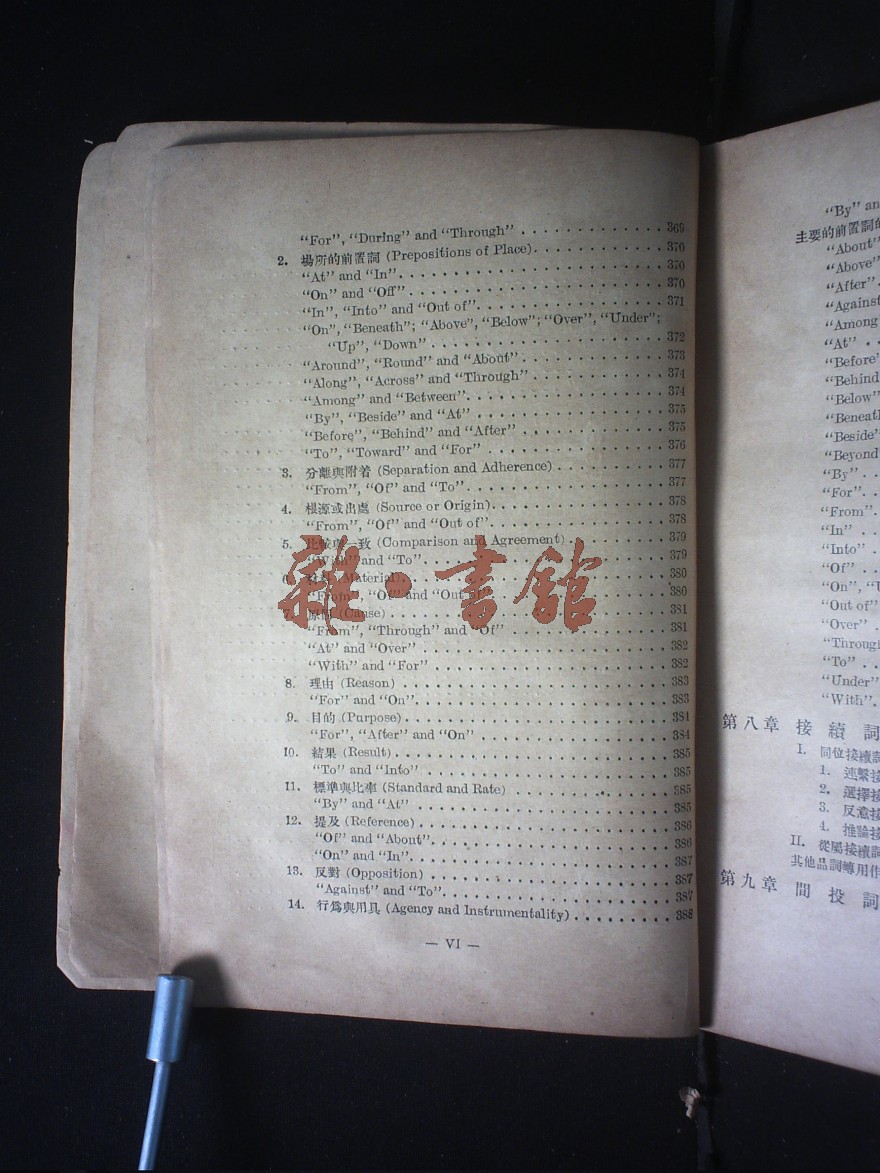 "For", "During" and "Through" . . . . . . . . . . . . . 369
2. 場所的前置詞 (Prepositions of Place). . . . . . . . . . . . 370
"At" and "In". . . . . . . . . . . . . . . . . . . . . . . . 370
"On" and "Off". . . . . . . . . . . . . . . . . . . . . . . 370
"In", "Into" and "Out of". . . . . . . . . . . . . . . . . 371
"On", "Beneath"; "Above", "Below"; "Over", "Under";
"Up", "Down" . . . . . . . . . . . . . . . . . . . . . 372
"Around", "Round" and "About". . . . . . . . . . . . . 373
"Along", "Across" and "Through" . . . . . . . . . . . . 374
"Among" and "Between". . . . . . . . . . . . . . . . . . 374
"By", "Beside" and "At" . . . . . . . . . . . . . . . . . 375
"Before", "Behind" and "After" . . . . . . . . . . . . . 375
"To", "Toward" and "For" . . . . . . . . . . . . . . . . 376
3. 分離與附着 (Separation and Adherence) . . . . . . . . . . 377
"From", "Of" and "To". . . . . . . . . . . . . . . . . . 377
4. 根源或出處 (Source or Origin). . . . . . . . . . . . . . . . 378
"From", "Of" and "Out of". . . . . . . . . . . . . . . . 378
5. 比較與一致 (Comparison and Agreement) . . . . . . . . . 379
"With" and "To". . . . . . . . . . . . . . . . . . . . . . 379
6. (Material). . . . . . . . . . . . . . . . . . . . . . . 380
"From", "Of" and "Out of". . . . . . . . . . . . . . . . 380
7. 原因 (Cause) . . . . . . . . . . . . . . . . . . . . . . . . 381
"From", "Through" and "Of" . . . . . . . . . . . . . . 381
"At" and "Over" . . . . . . . . . . . . . . . . . . . . . 382
"With" and "For" . . . . . . . . . . . . . . . . . . . . 382
8. 理由 (Reason) . . . . . . . . . . . . . . . . . . . . . . . 383
"For" and "On". . . . . . . . . . . . . . . . . . . . . . 383
9. 目的 (Purpose). . . . . . . . . . . . . . . . . . . . . . . 384
"For", "After" and "On" . . . . . . . . . . . . . . . . . 384
10. 結果 (Result). . . . . . . . . . . . . . . . . . . . . . . . 385
"To" and "Into" . . . . . . . . . . . . . . . . . . . . . 385
11. 標準與比率 (Standard and Rate) . . . . . . . . . . . . . . 385
"By" and "At" . . . . . . . . . . . . . . . . . . . . . . 385
12. 提及 (Reference) . . . . . . . . . . . . . . . . . . . . . . 386
"Of" and "About". . . . . . . . . . . . . . . . . . . . . 386
"On" and "In". . . . . . . . . . . . . . . . . . . . . . . 387
13. 反對 (Opposition) . . . . . . . . . . . . . . . . . . . . . 387
"Against" and "To". . . . . . . . . . . . . . . . . . . . 387
14. 行爲與用具 (Agency and Instrumentality) . . . . . . . . . 388
— VI —
雜·書館
"By" an
主要的前置詞的
"About"
"Above"
"After" .
"Against
"Among
"At" . .
"Before"
"Behind
"Below"
"Beneath
"Beside"
"Beyond
"By" . .
"For". .
"From".
"In" . .
"Into" .
"Of" . .
"On", "U
"Out of"
"Over" .
"Through
"To" . .
"Under"
"With".
第八章 接續詞
I. 同位接續詞
1. 連繫接
2. 選擇接
3. 反意接
4. 推論接
II. 從屬接續詞
其他品詞轉用作
第九章 間投詞